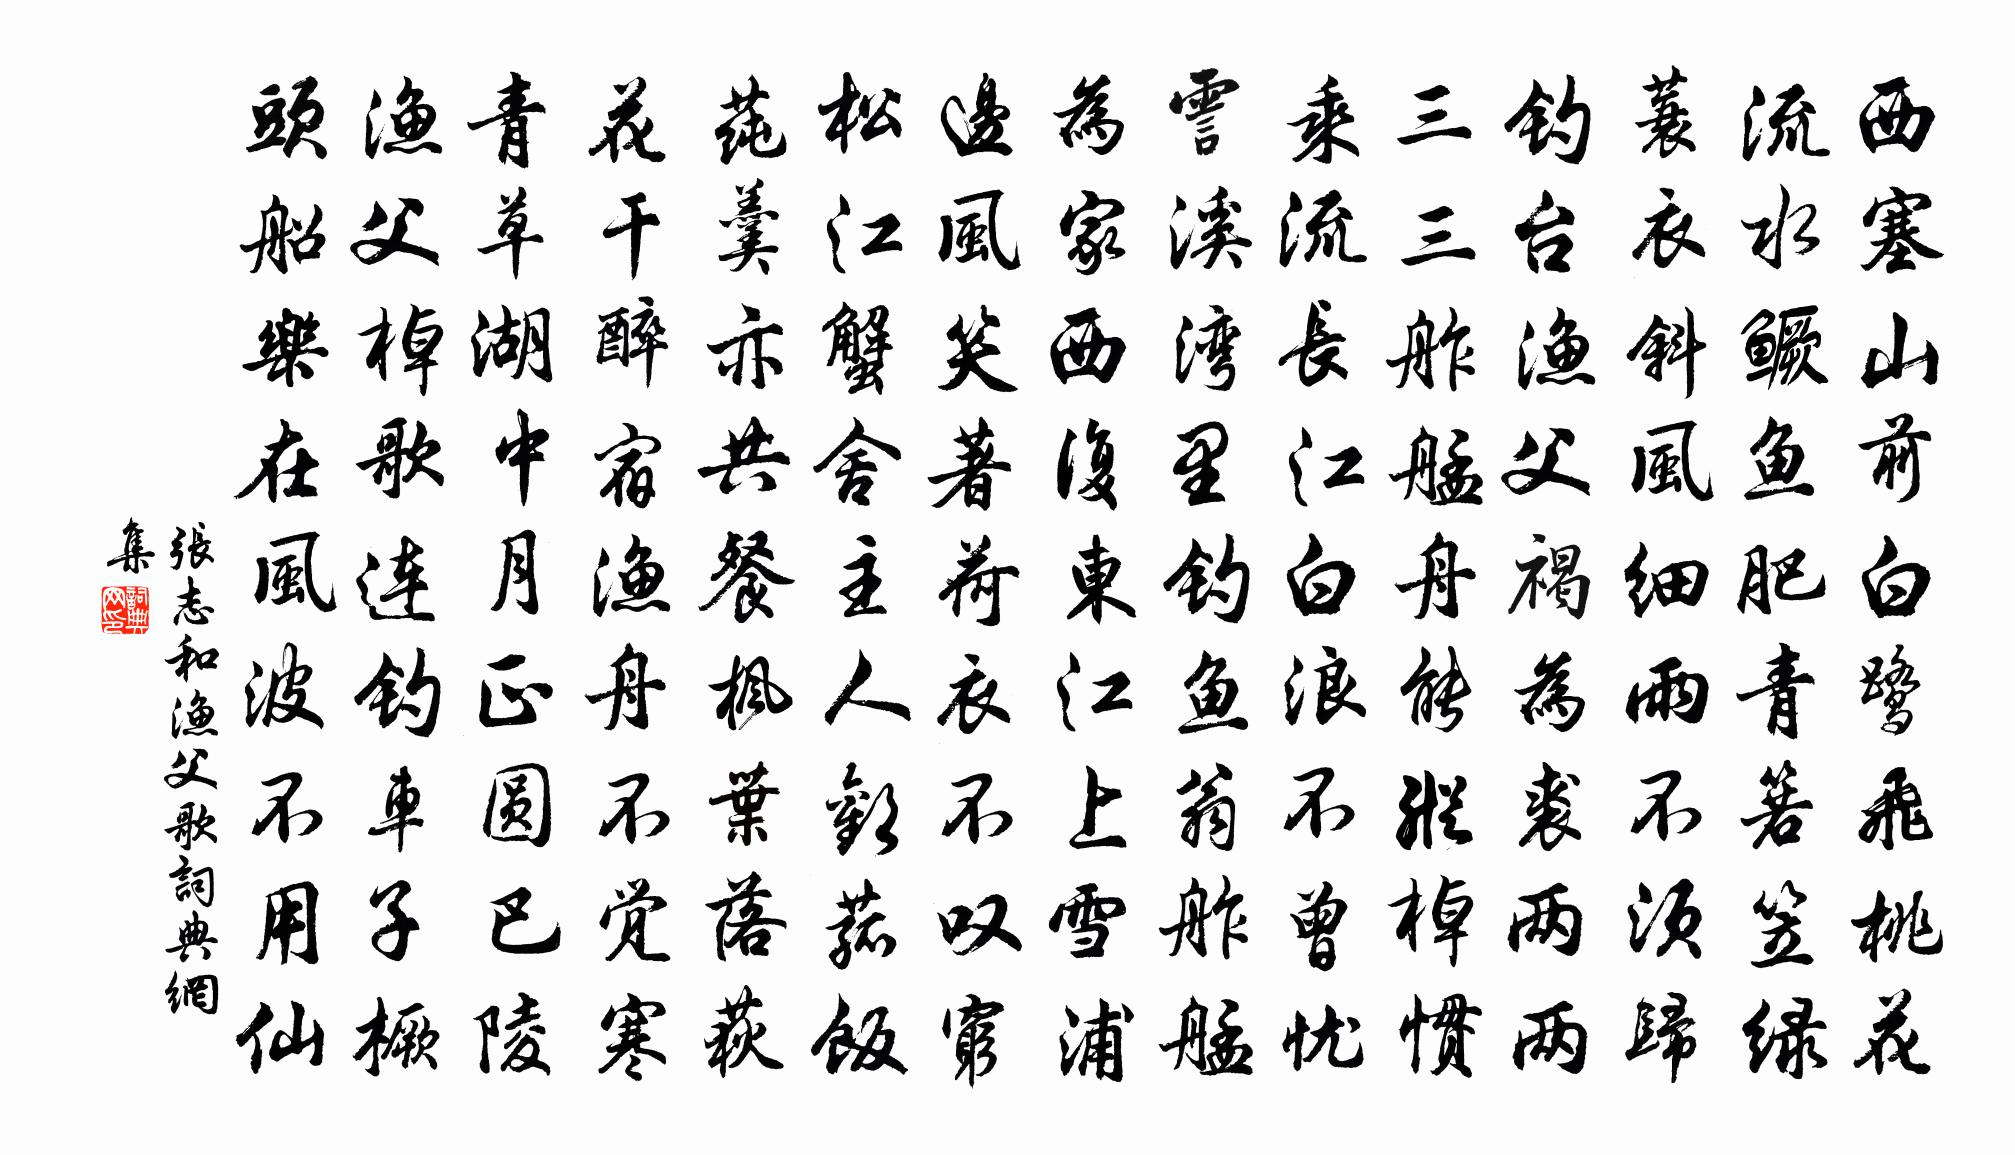 西塞山前白鹭飛桃花
流水鳜鱼肥青箬笠绿
蓑衣斜風细雨不须歸
钓台渔父褐為裘两两
三三舴艋舟能縱棹惯
乘流長江白浪不曾忧
霅溪湾里钓鱼翁舴艋
為家西復東江上雪浦
邊風笑著荷衣不叹窮
松江蟹舍主人歡菰飯
莼羹亦共餐枫葉落荻
花干醉宿渔舟不觉寒
青草湖中月正圆巴陵
渔父棹歌连钓車子橛
頭船樂在風波不用仙
張志和渔父歌詞典網
集
詞典网印